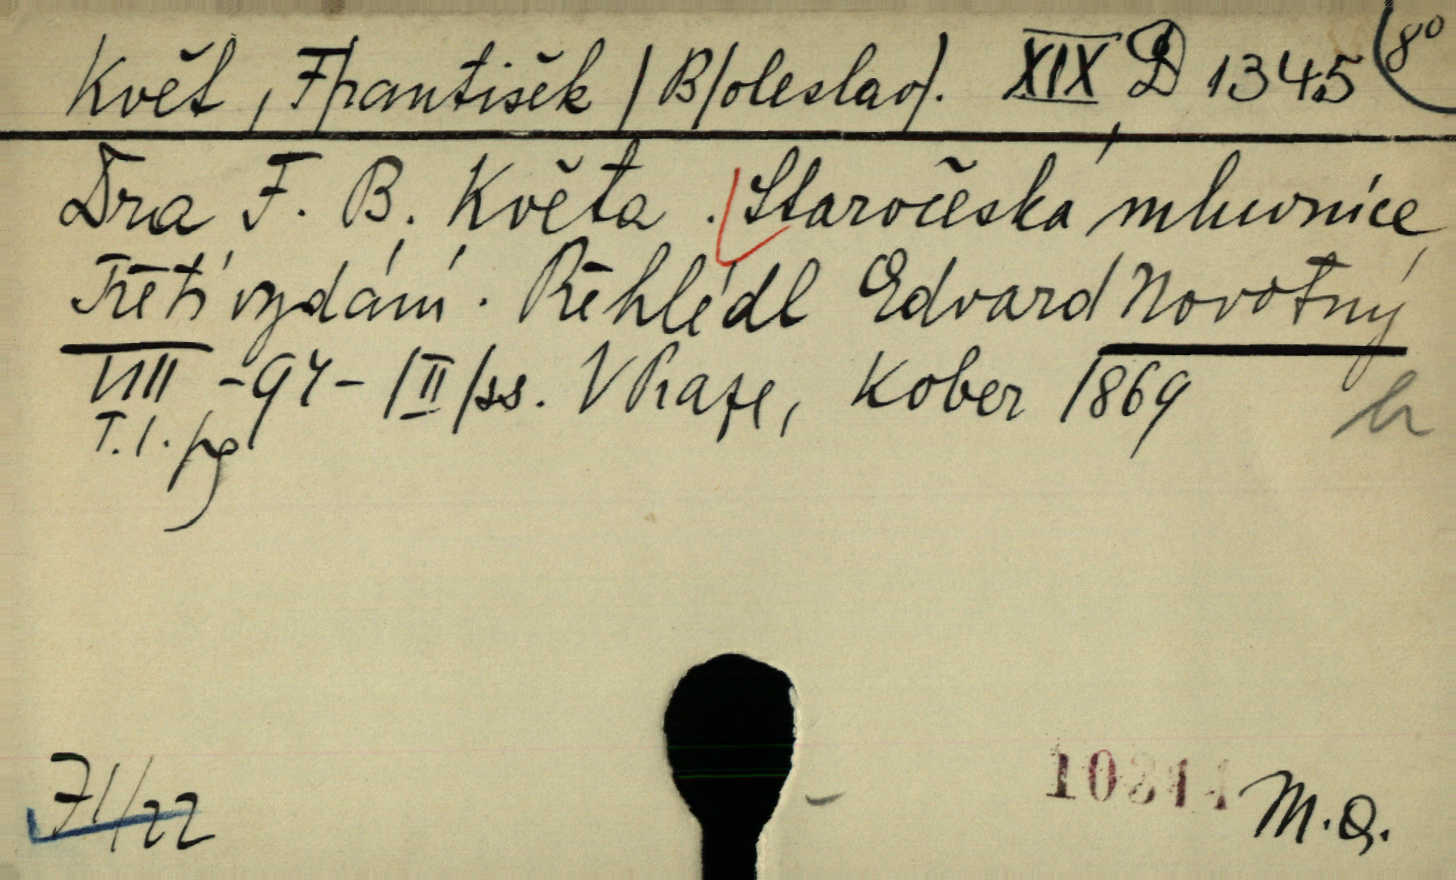 Květ, František /B/oleslav/. XIX D 1345 8°
Dra F. B. Květa. Staročeská mluvnice
Třetí vydání. Přehlédl Edvard Novotný
VIII -94- /II/ ss. V Praze, Kober 1869
T. l. pg
71/22
M.Q.